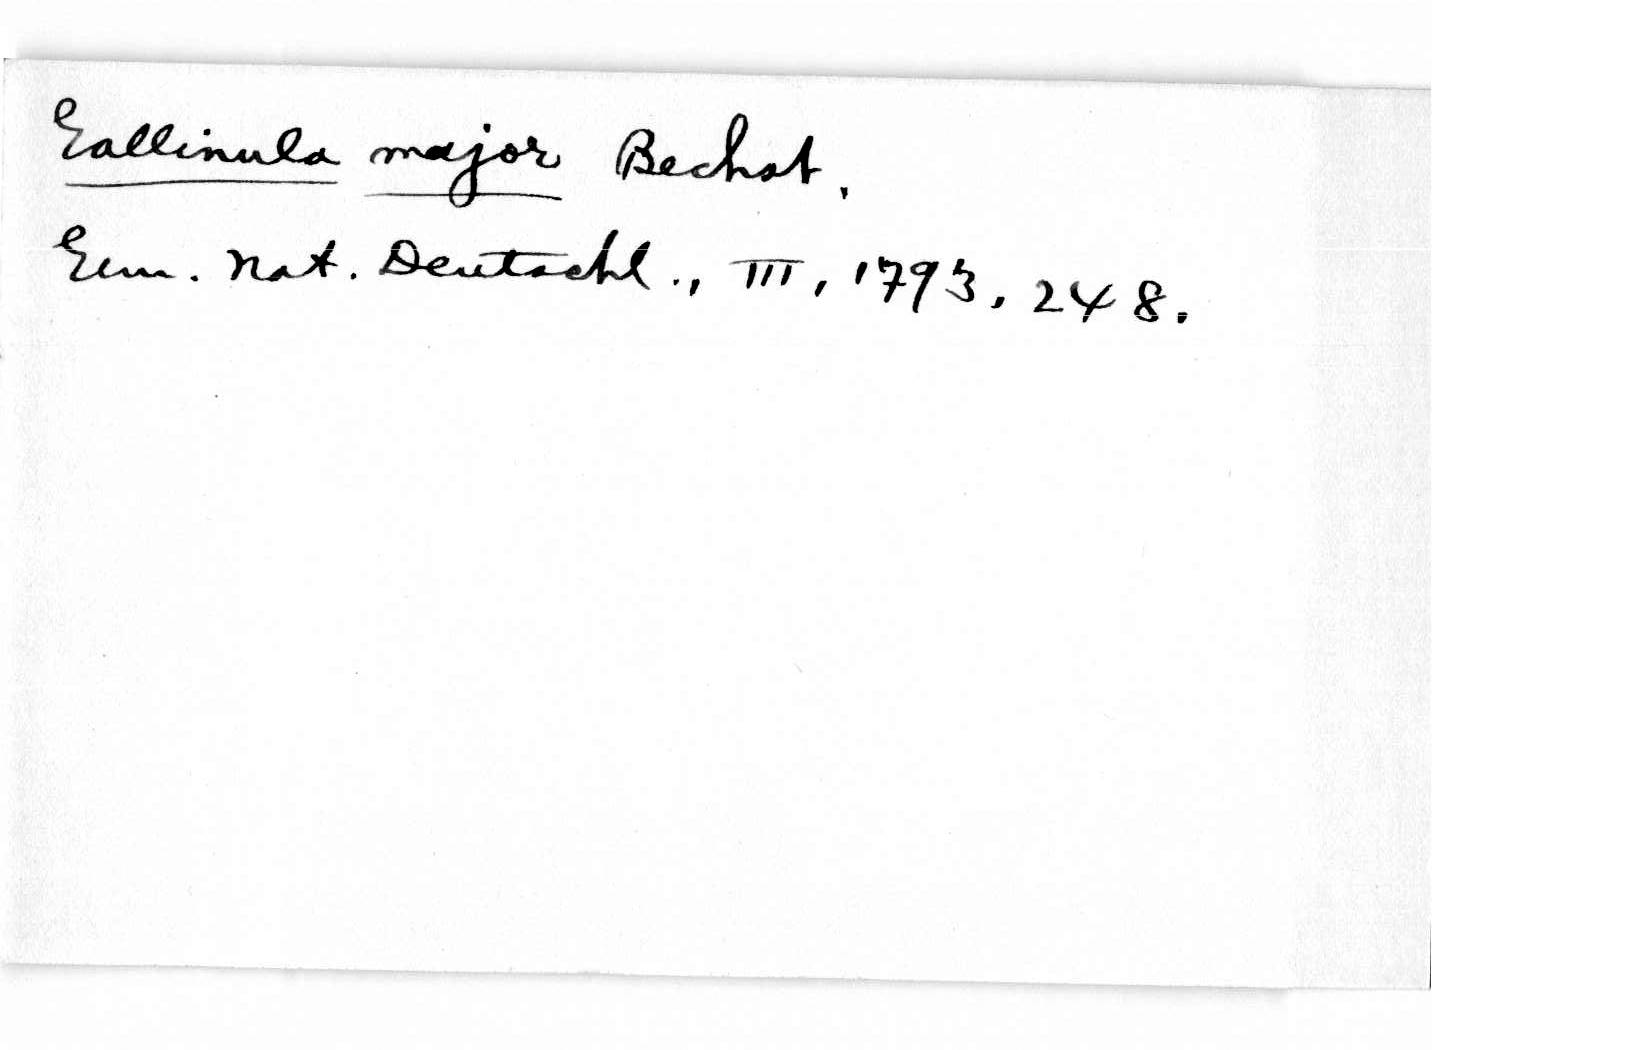 Gallinula major Bechst.
Gem. Nat. Deutschl., III, 1793, 248.